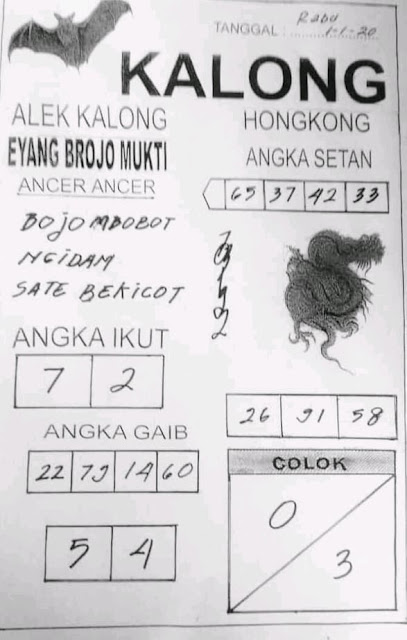 TANGGAL : Rabu 1-1-20
KALONG
ALEK KALONG
HONGKONG
EYANG BROJO MUKTI
ANGKA SETAN
ANCER ANCER
65 37 42 33
BOJO MBOBOT
NGIDAM
SATE BEKICOT
ANGKA IKUT
7 2
26 91 58
ANGKA GAIB
COLOK
22 79 14 60
0
5 4
3